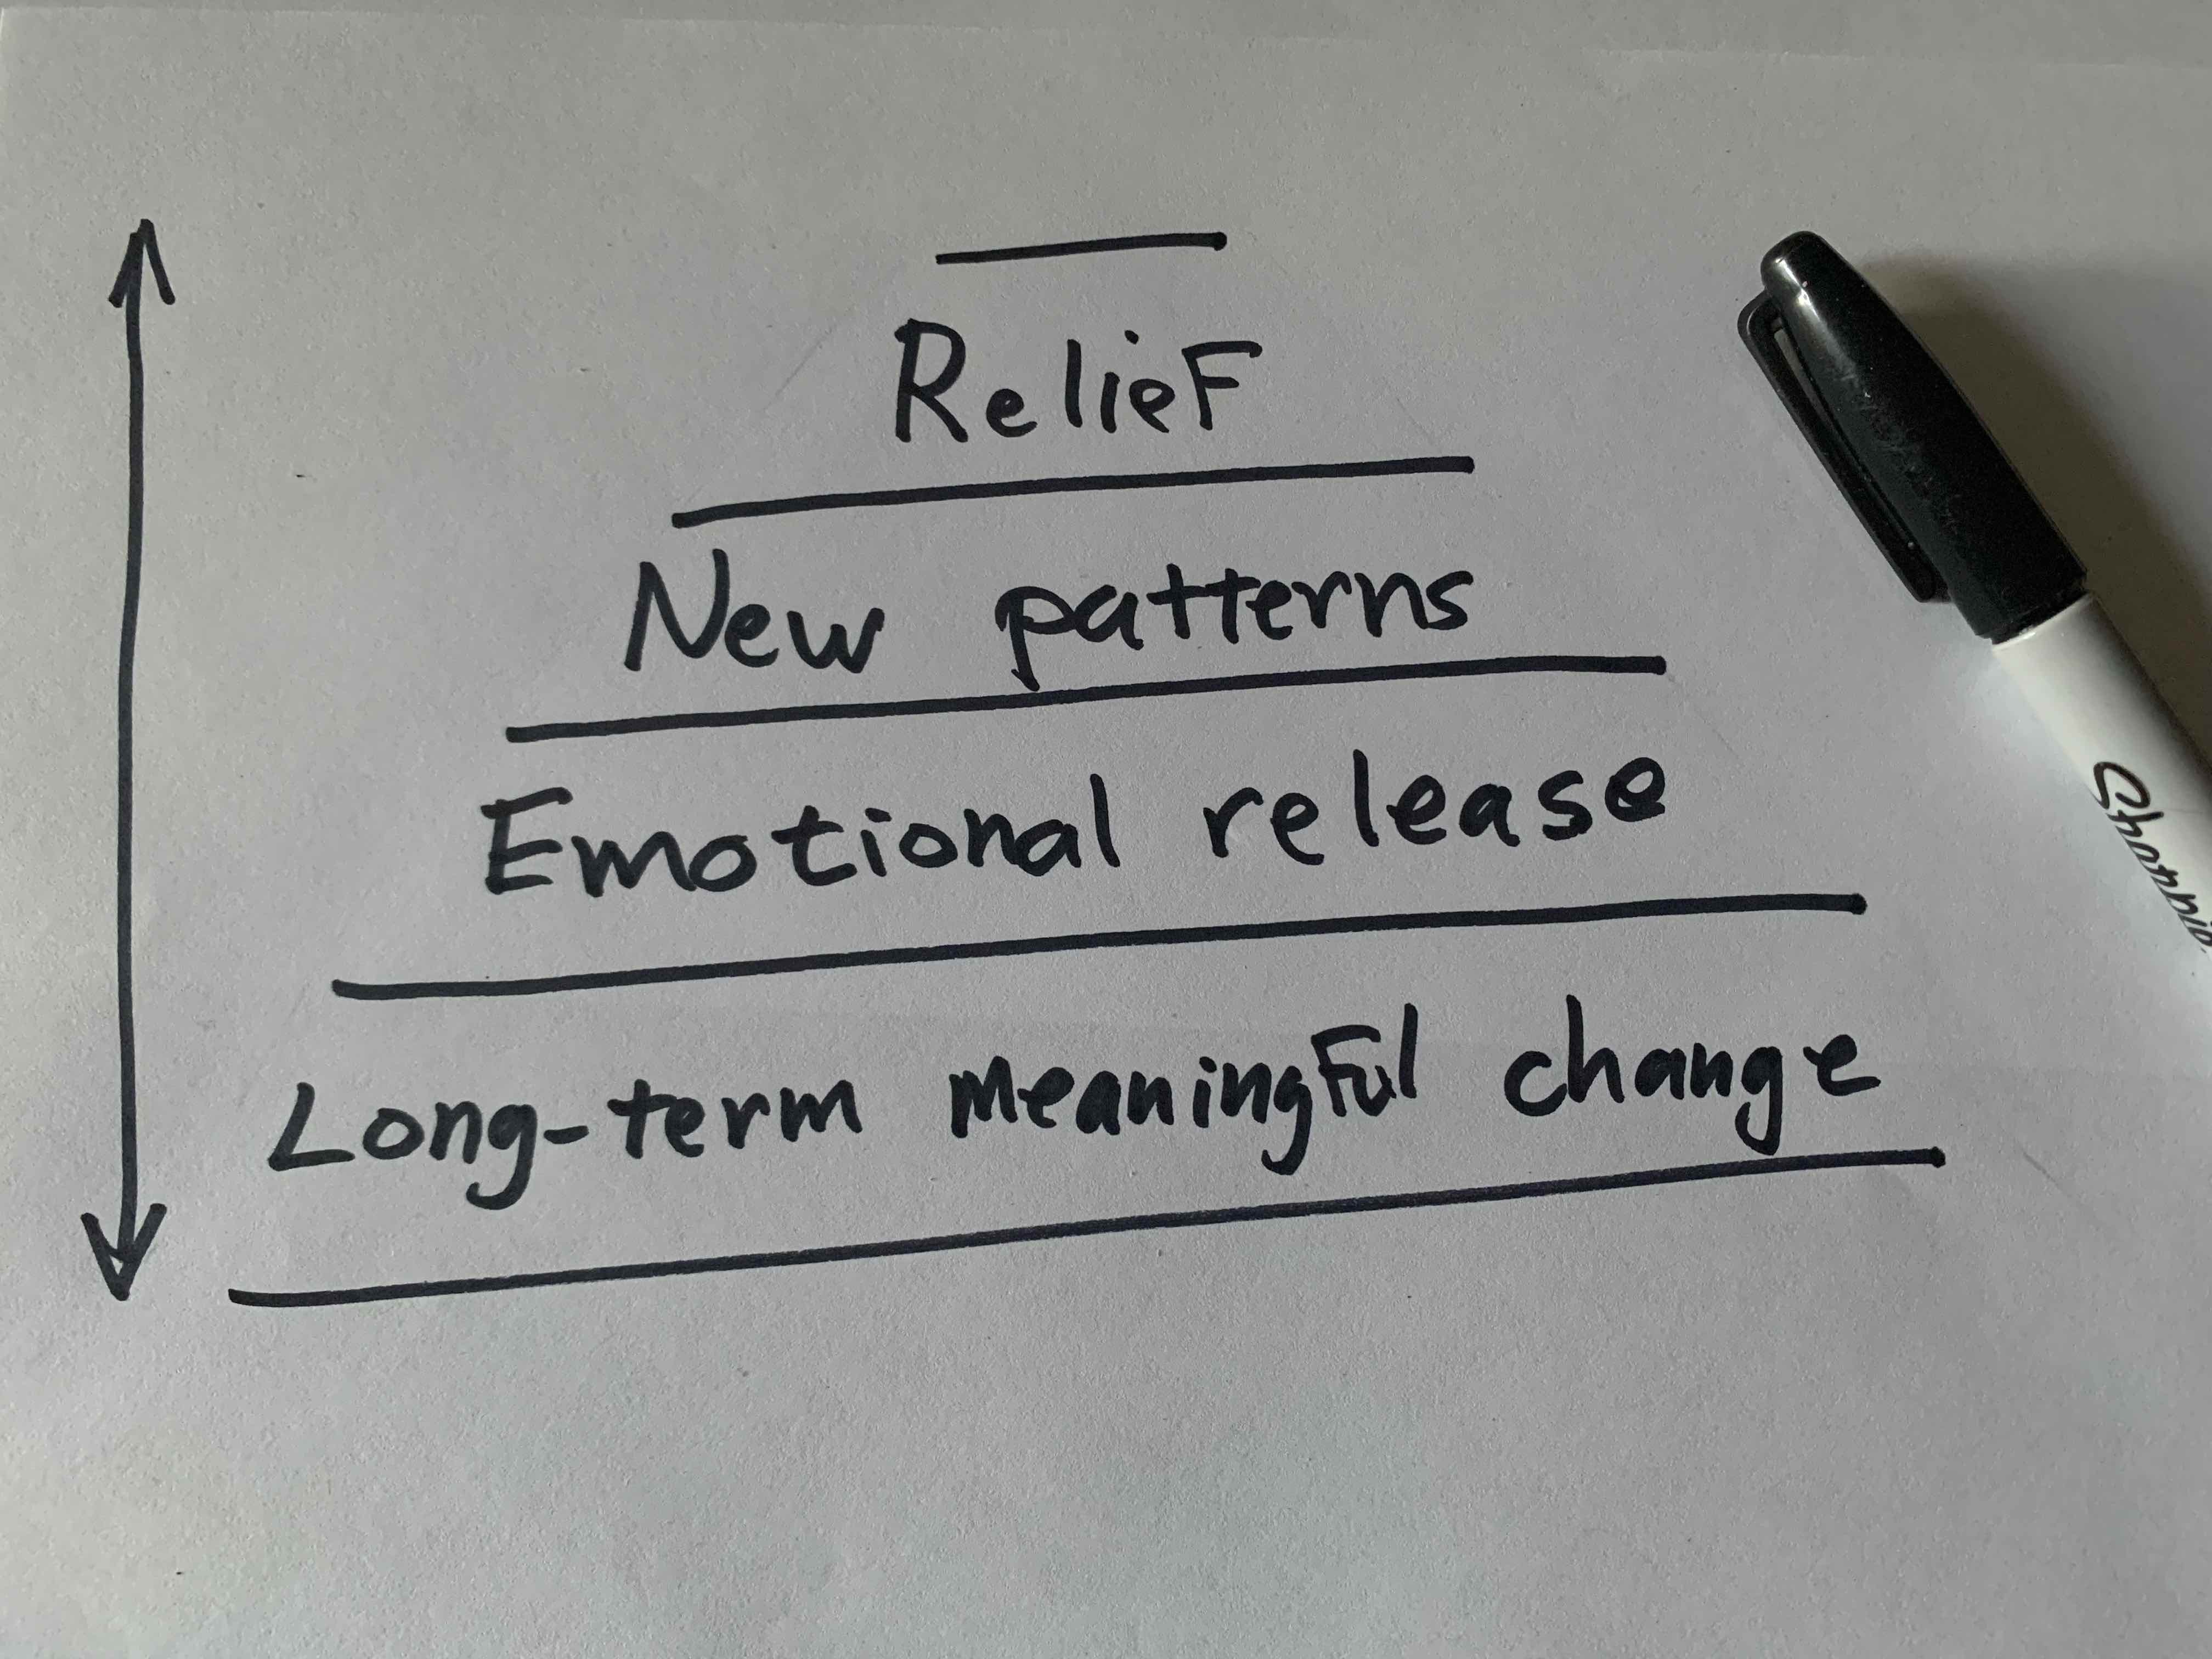 Relief
New patterns
Emotional release
Long-term meaningful change
Sharpie